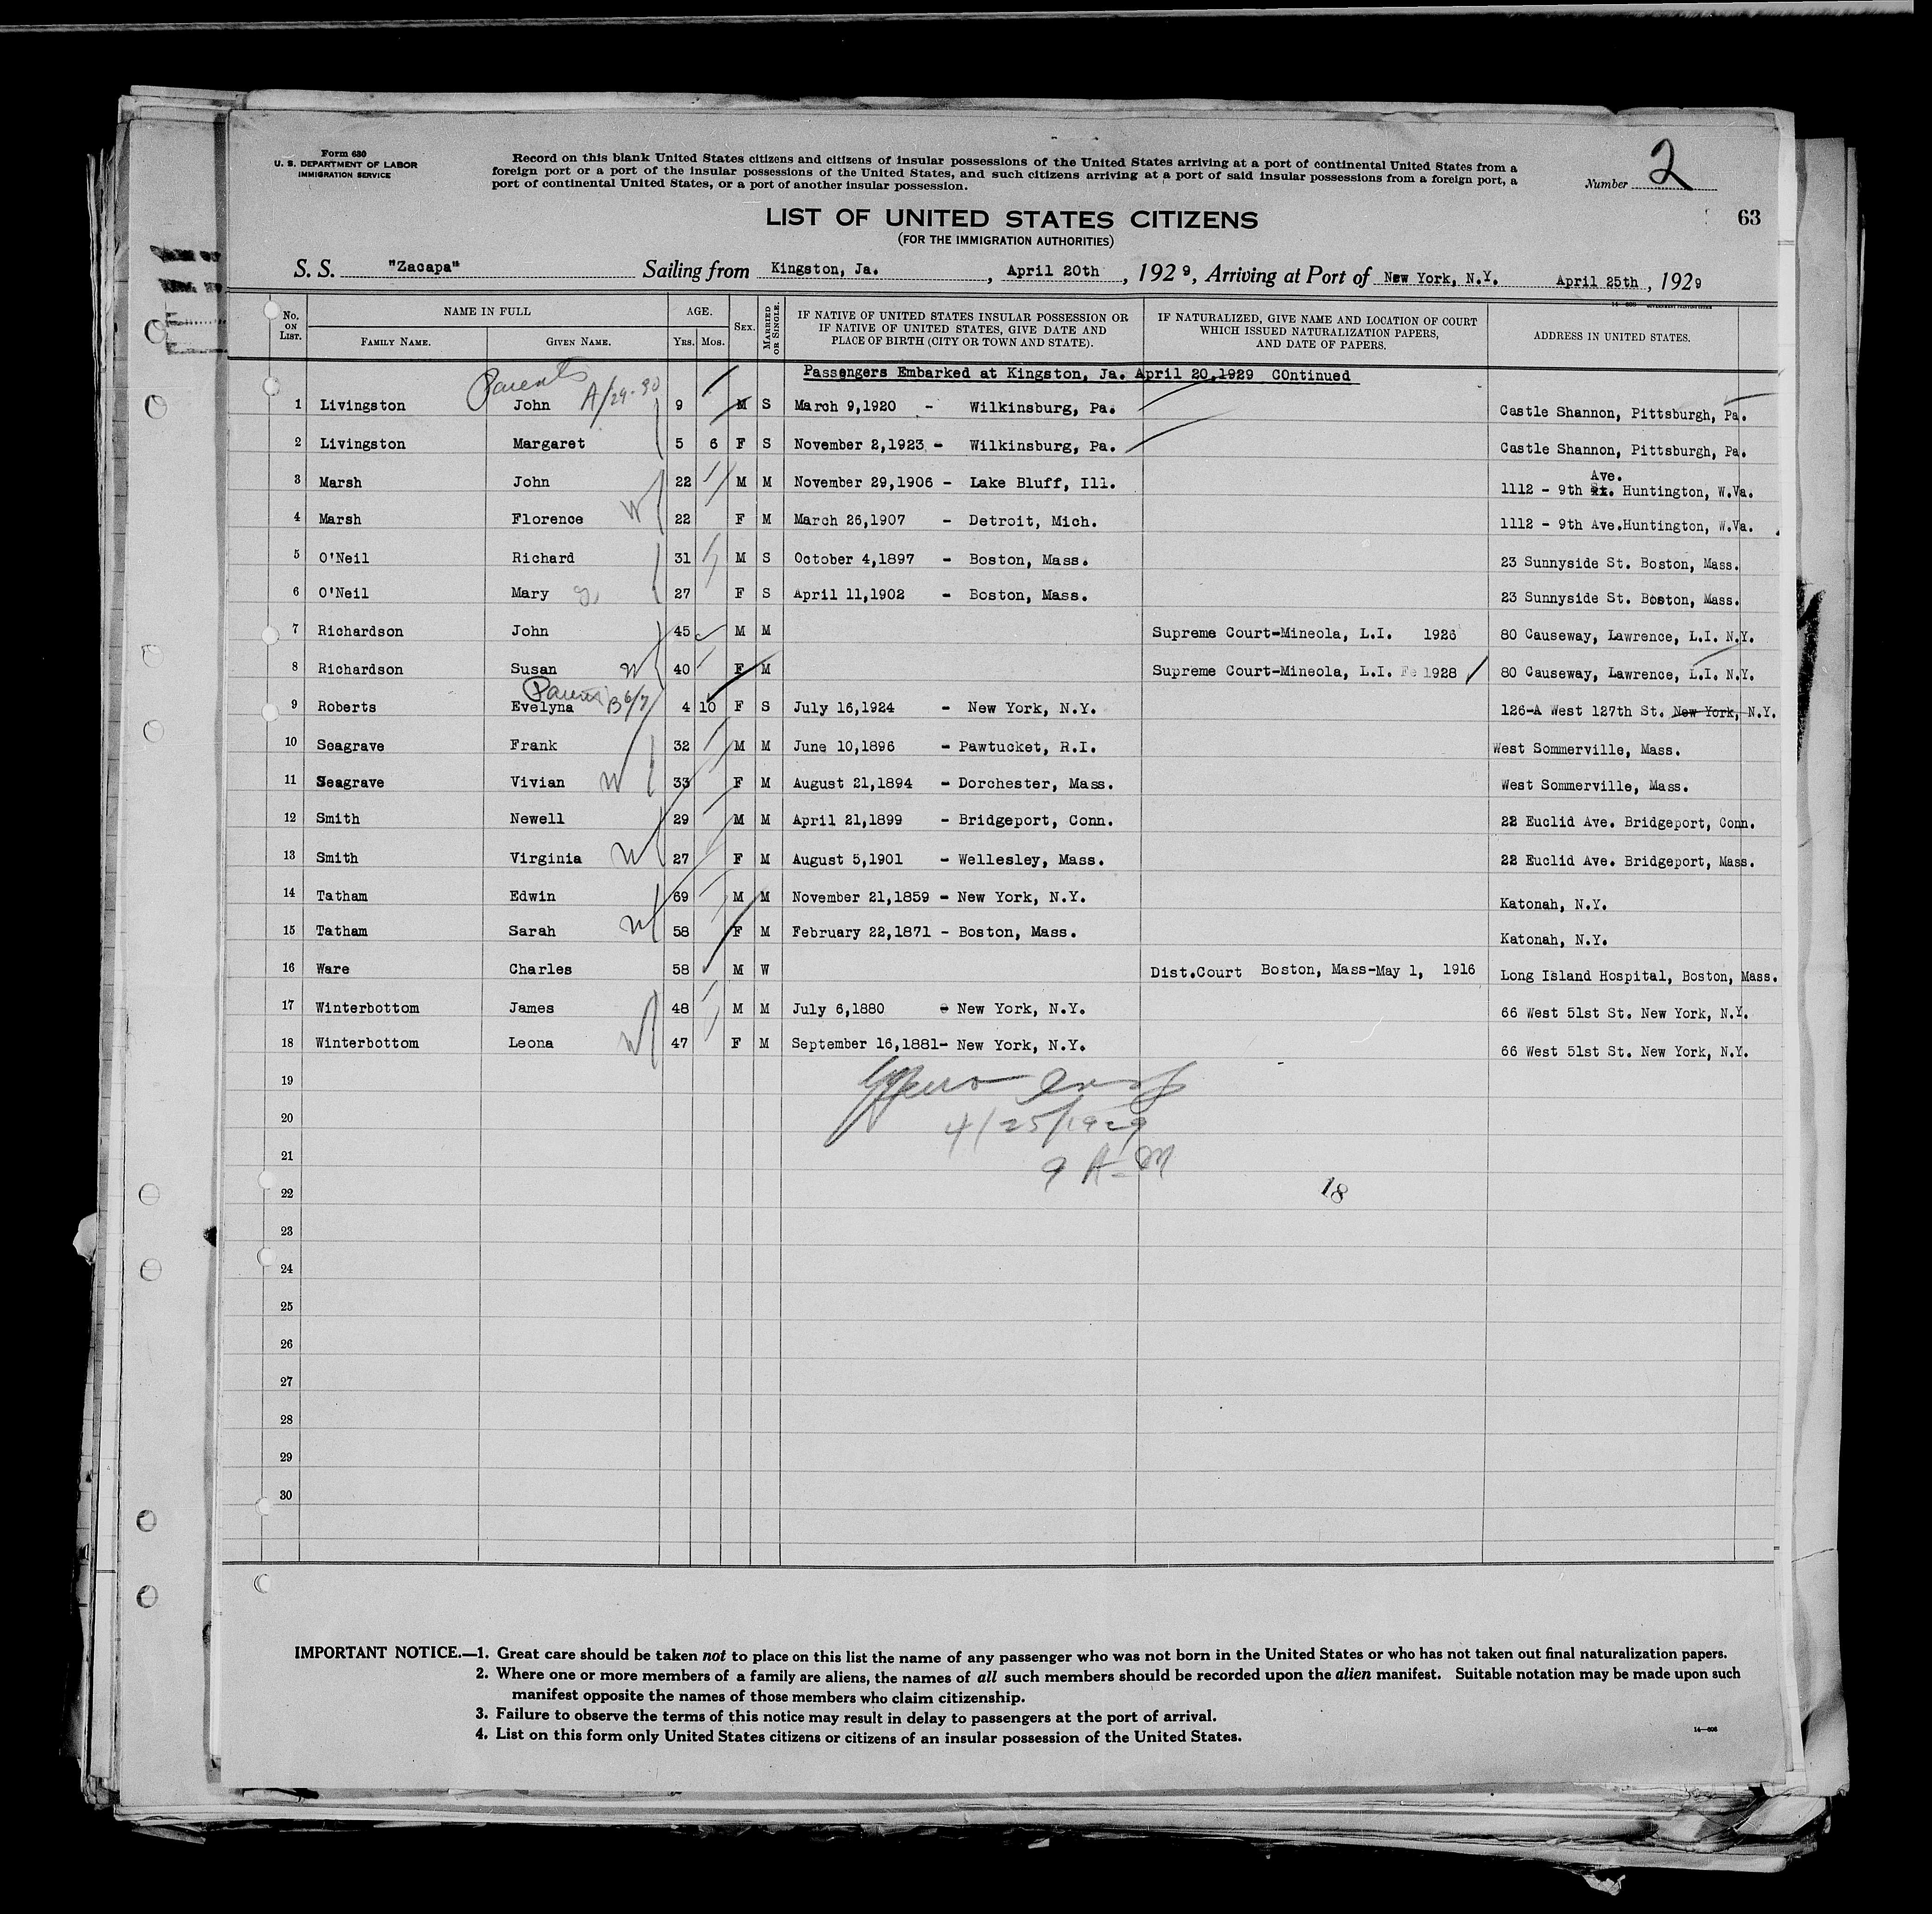 Form 630
U. S. DEPARTMENT OF LABOR
IMMIGRATION SERVICE
Record on this blank United States citizens and citizens of insular possessions of the United States arriving at a port of continental United States from a
foreign port or a port of the insular possessions of the United States, and such citizens arriving at a port of said insular possessions from a foreign port, a
port of continental United States, or a port of another insular possession.
Number 2
63
LIST OF UNITED STATES CITIZENS
(FOR THE IMMIGRATION AUTHORITIES)
S. S. "Zacapa" Sailing from Kingston, Ja. , April 20th , 1929, Arriving at Port of New York, N.Y. April 25th , 1929
No. ON LIST. NAME IN FULL FAMILY NAME. GIVEN NAME. AGE. YRS. MOS. SEX. MARRIED OR SINGLE. IF NATIVE OF UNITED STATES INSULAR POSSESSION OR IF NATIVE OF UNITED STATES, GIVE DATE AND PLACE OF BIRTH (CITY OR TOWN AND STATE). IF NATURALIZED, GIVE NAME AND LOCATION OF COURT WHICH ISSUED NATURALIZATION PAPERS, AND DATE OF PAPERS. ADDRESS IN UNITED STATES.
Parents A/29-30
Passengers Embarked at Kingston, Ja. April 20,1929 COntinued
1 Livingston John 9 M S March 9,1920 - Wilkinsburg, Pa. Castle Shannon, Pittsburgh, Pa.
2 Livingston Margaret 5 6 F S November 2,1923 - Wilkinsburg, Pa. Castle Shannon, Pittsburgh, Pa.
3 Marsh John 22 M M November 29,1906 - Lake Bluff, Ill. 1112 - 9th St. Ave. Huntington, W.Va.
4 Marsh Florence W 22 F M March 26,1907 - Detroit, Mich. 1112 - 9th Ave.Huntington, W.Va.
5 O'Neil Richard 31 M S October 4,1897 - Boston, Mass. 23 Sunnyside St. Boston, Mass.
6 O'Neil Mary 27 F S April 11,1902 - Boston, Mass. 23 Sunnyside St. Boston, Mass.
7 Richardson John 45 M M Supreme Court-Mineola, L.I. 1926 80 Causeway, Lawrence, L.I. N.Y.
8 Richardson Susan W 40 F M Supreme Court-Mineola, L.I. Fe 1928 80 Causeway, Lawrence, L.I. N.Y.
Parents B 6/7
9 Roberts Evelyna 4 10 F S July 16,1924 - New York, N.Y. 126-A West 127th St. New York, N.Y.
10 Seagrave Frank 32 M M June 10,1896 - Pawtucket, R.I. West Sommerville, Mass.
11 Seagrave Vivian W 33 F M August 21,1894 - Dorchester, Mass. West Sommerville, Mass.
12 Smith Newell 29 M M April 21,1899 - Bridgeport, Conn. 22 Euclid Ave. Bridgeport, Conn.
13 Smith Virginia W 27 F M August 5,1901 - Wellesley, Mass. 22 Euclid Ave. Bridgeport, Mass.
14 Tatham Edwin 69 M M November 21,1859 - New York, N.Y. Katonah, N.Y.
15 Tatham Sarah W 58 F M February 22,1871 - Boston, Mass. Katonah, N.Y.
16 Ware Charles 58 M W Dist.Court Boston, Mass-May 1, 1916 Long Island Hospital, Boston, Mass.
17 Winterbottom James 48 M M July 6,1880 - New York, N.Y. 66 West 51st St. New York, N.Y.
18 Winterbottom Leona W 47 F M September 16,1881- New York, N.Y. 66 West 51st St. New York, N.Y.
19
20
4/25/1929
21
9 A-M
22
18
23
24
25
26
27
28
29
30
IMPORTANT NOTICE.—1. Great care should be taken not to place on this list the name of any passenger who was not born in the United States or who has not taken out final naturalization papers.
2. Where one or more members of a family are aliens, the names of all such members should be recorded upon the alien manifest. Suitable notation may be made upon such
manifest opposite the names of those members who claim citizenship.
3. Failure to observe the terms of this notice may result in delay to passengers at the port of arrival.
4. List on this form only United States citizens or citizens of an insular possession of the United States.